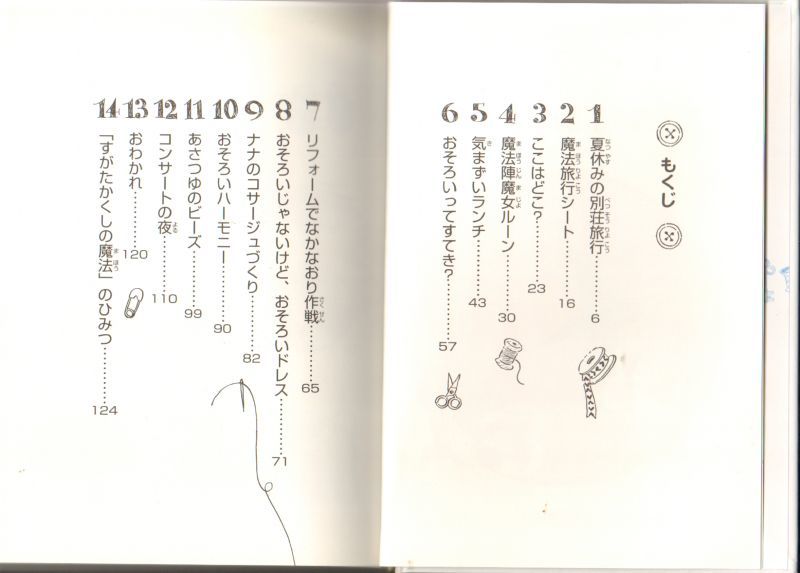 もくじ
1 夏休みの別荘旅行………6
2 魔法旅行シート………16
3 ここはどこ?………23
4 魔法陣魔女ルーン………30
5 気まずいランチ………43
6 おそろいってすてき?………57
7 リフォームでなかなおり作戦………65
8 おそろいじゃないけど、おそろいドレス………71
9 ナナのコサージュづくり………82
10 おそろいハーモニー………90
11 あさつゆのビーズ………99
12 コンサートの夜………110
13 おわかれ………120
14 「すがたかくしの魔法」のひみつ………124